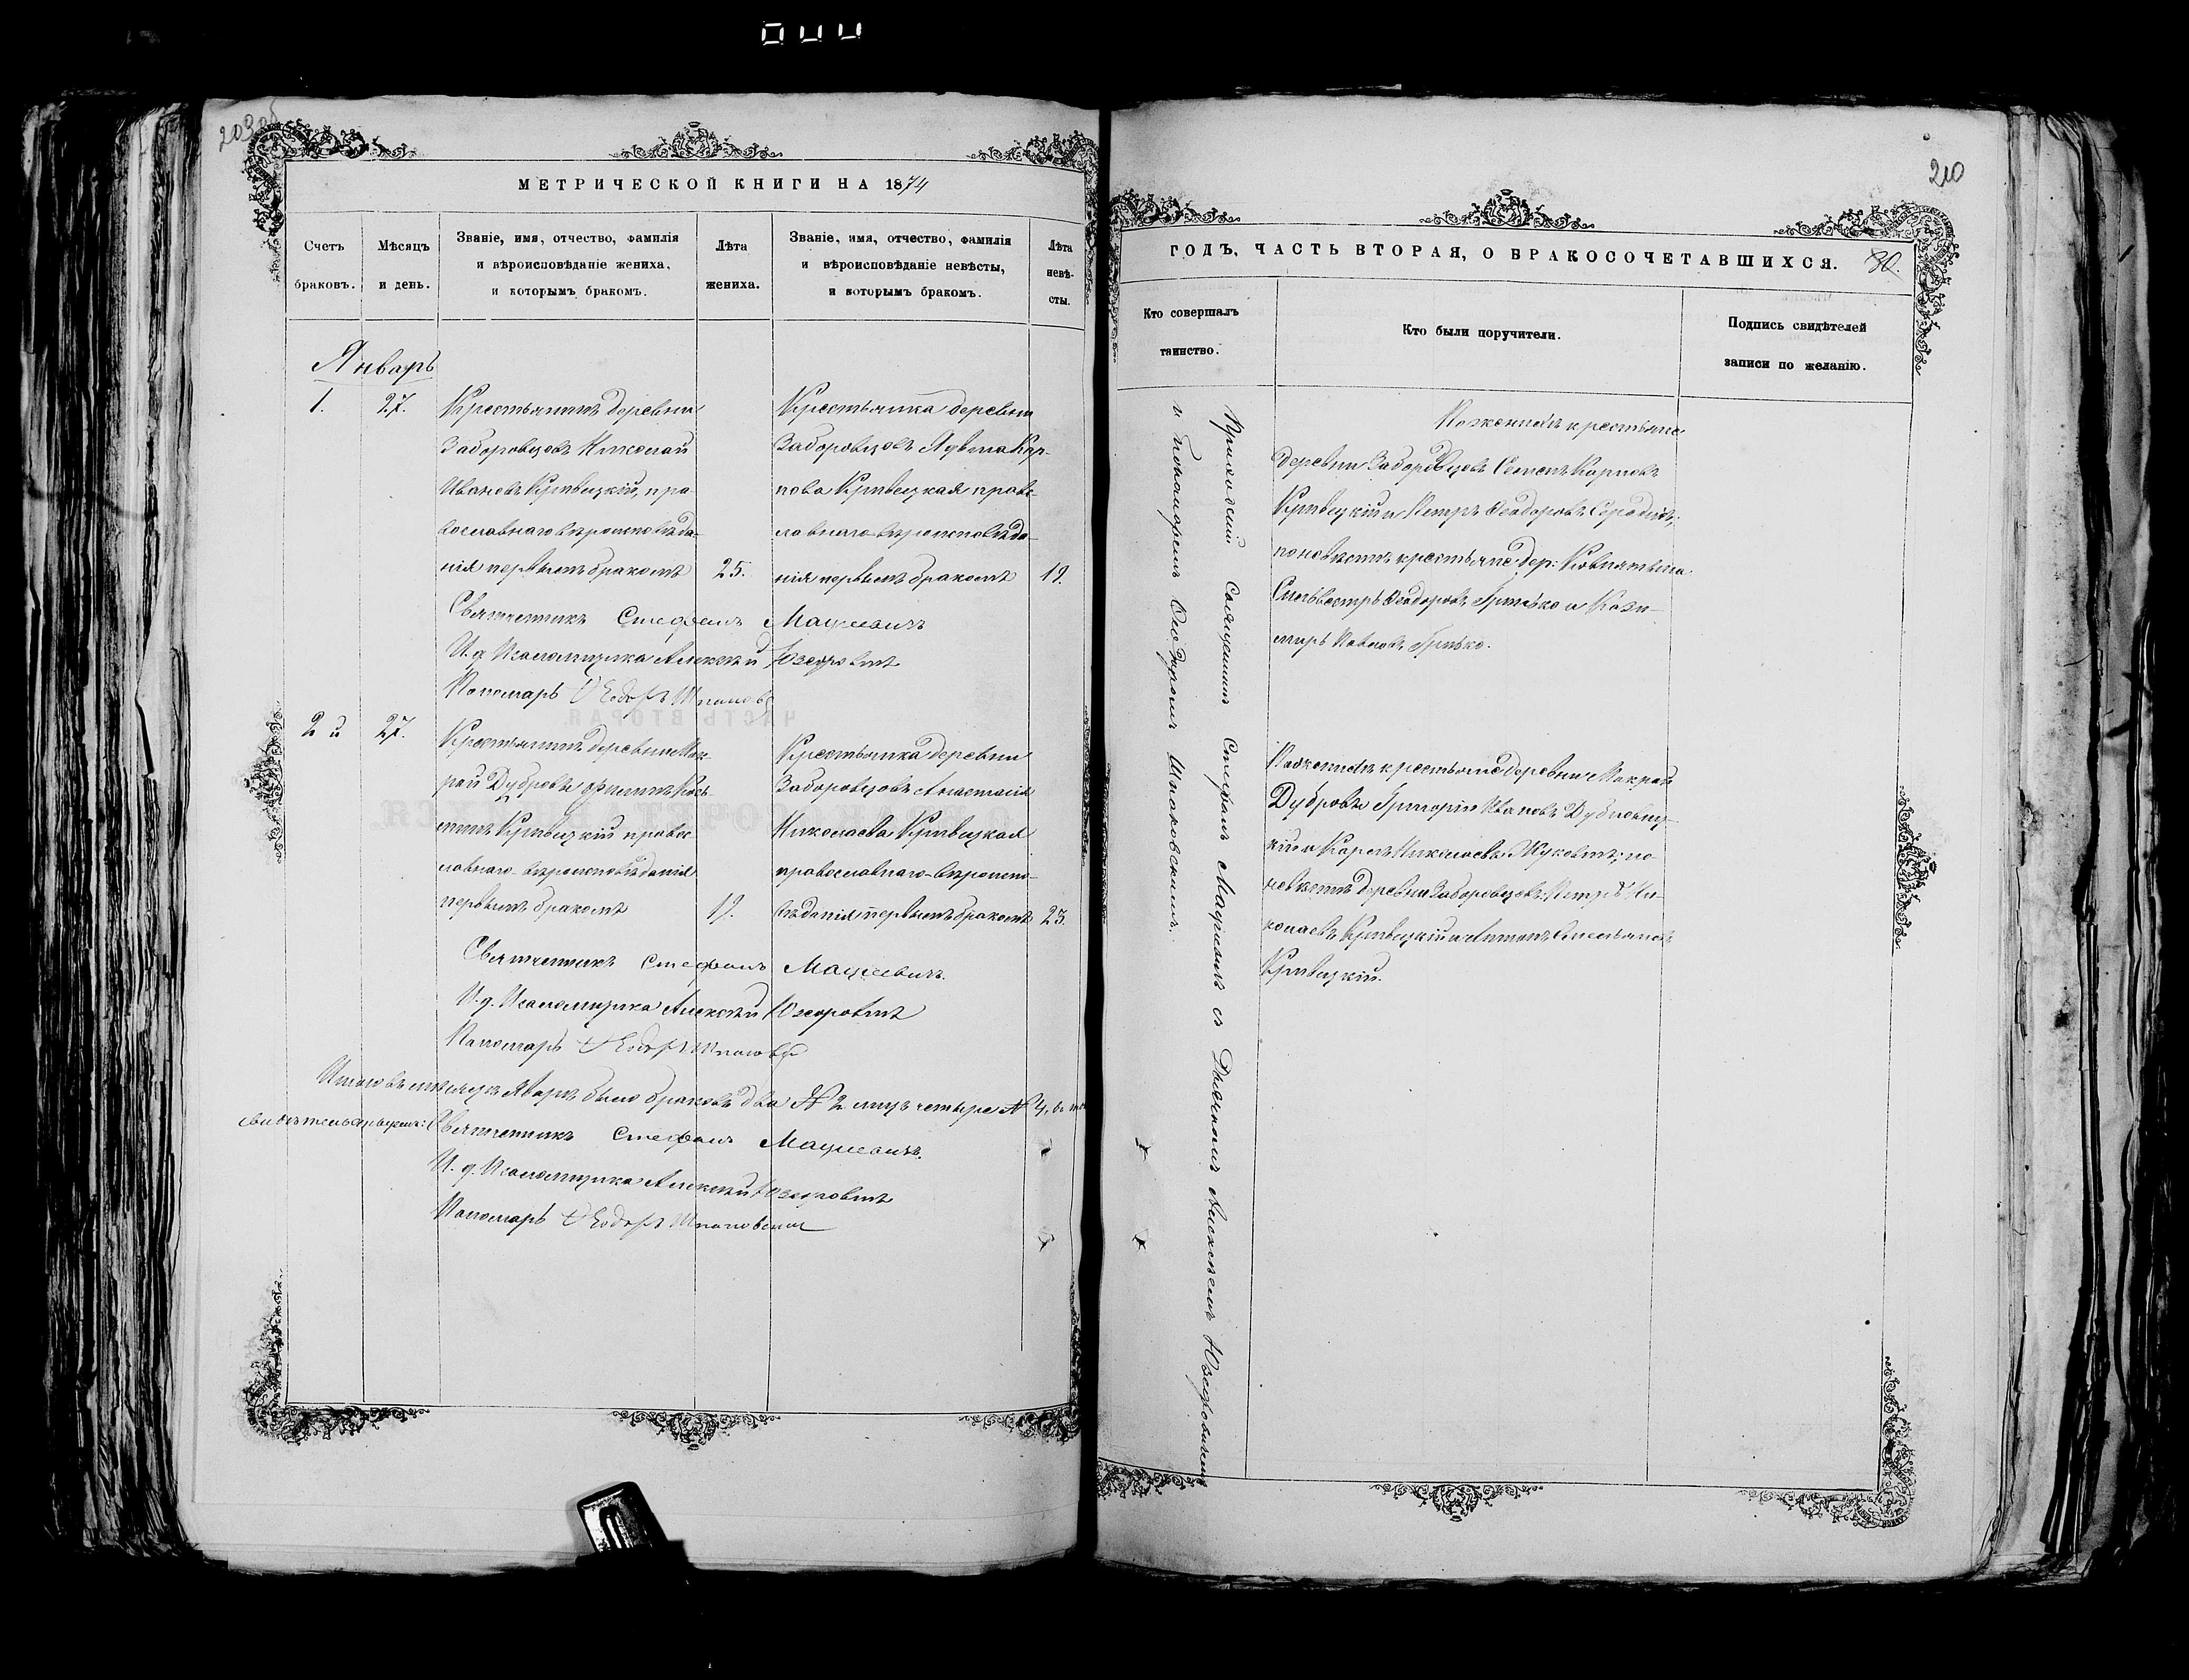 209об
МЕТРИЧЕСКОЙ КНИГИ НА 1874
Счетъ
браковъ.
Мѣсяцъ
и день.
Званіе, имя, отчество, фамилія
и вѣроисповѣданіе жениха,
и которымъ бракомъ.
Лѣта
жениха.
Званіе, имя, отчество, фамилія
и вѣроисповѣданіе невѣсты,
и которымъ бракомъ.
Лѣта
невѣ-
сты.
Январь
1. 27.
Крестьянинъ деревни
Заборовцовъ Николай
Ивановъ Кривецкій, пра-
вославнаго вѣроисповѣда-
нія первымъ бракомъ
25.
Крестьянка деревни
Заборовцовъ Ядвига Кар-
пова Кривецкая правос-
лавнаго вѣроисповѣда-
нія первымъ бракомъ
19.
Священникъ Стефанъ Мацкевичъ
И. д. Псаломщика Алексѣй Юзефовичъ
Пономарь Ѳеодоръ
2й 27.
Крестьянинъ деревни Мок-
рой Дубровы
Кривецкій правос-
лавнаго вѣроисповѣданія
первымъ бракомъ
19.
Крестьянка деревни
Заборовцовъ Анастасія
Николаева Кривецкая
православнаго вѣроиспо-
вѣданія первымъ бракомъ
23.
Священникъ Стефанъ Мацкевичъ.
И. д. Псаломщика Алексѣй Юзефовичъ
Пономарь Ѳеодоръ
Итого въ мѣсяцѣ Январѣ было браковъ два № 2 лицъ четыре № 4, въ чемъ
свидѣтельствуемъ: Священникъ Стефанъ Мацкевичъ.
И. д. Псаломщика Алексѣй Юзефовичъ
Пономарь Ѳеодоръ Шпаковскій
210
ГОДЪ, ЧАСТЬ ВТОРАЯ, О БРАКОСОЧЕТАВШИХСЯ. 80.
Кто совершалъ
таинство.
Кто были поручители.
Подпись свидѣтелей
записи по желанію.
Приходскій Священникъ Стефанъ Мацкевичъ съ Дьячкомъ Алексѣемъ Юзефовичемъ
и Пономаремъ Ѳеодоромъ Шпаковскимъ.
По женихѣ крестьяне
деревни Заборовцовъ Семенъ Карповъ
Кривецкій и Петръ Ѳеодоровъ
по невѣстѣ крестьяне дер:
Сильвестръ Ѳеодоровъ Гринько и Кази-
миръ Павловъ Гринько.
По женихѣ крестьяне деревни Мокрой
Дубровы Григорій Ивановъ Дубновиц-
кій и Карпъ Николаевъ Жуковичъ; по
невѣстѣ деревни Заборовцовъ: Петръ Ни-
колаевъ Кривецкій и Антонъ Емельяновъ
Кривецкій.